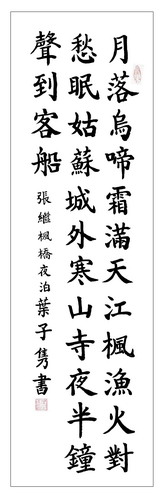 月落烏啼霜滿天江楓漁火對
愁眠姑蘇城外寒山寺夜半鐘
聲到客船
張繼楓橋夜泊葉子雋書